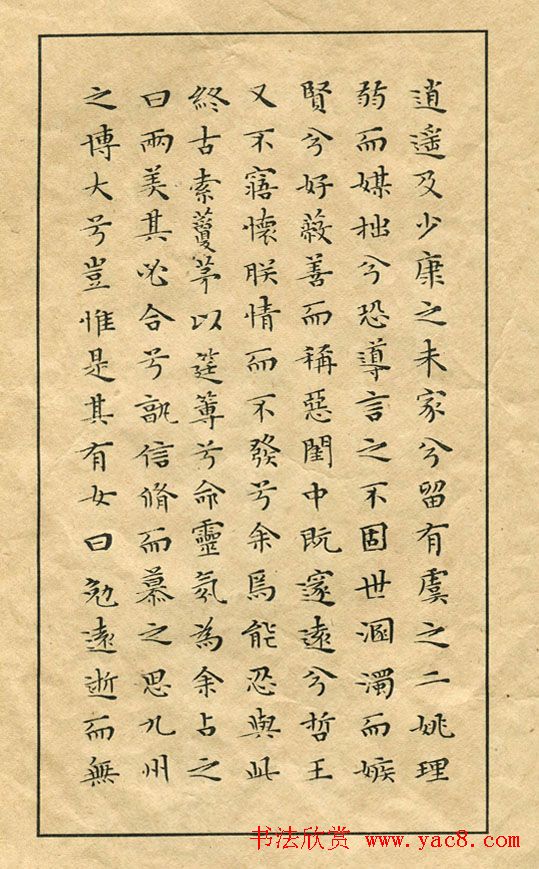 逍遥及少康之未家兮留有虞之二姚理
弱而媒拙兮恐導言之不固世溷濁而嫉
賢兮好蔽善而稱惡閨中既邃遠兮哲王
又不寤懷朕情而不發兮余焉能忍與此
終古索藑茅以筳篿兮命靈氛為余占之
曰兩美其必合兮孰信脩而慕之思九州
之博大兮豈惟是其有女曰勉遠逝而無
书法欣赏 www.yac8.com